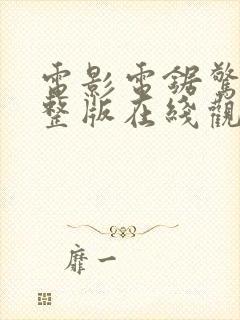 電影電鋸驚
整版在綫觀
靡一